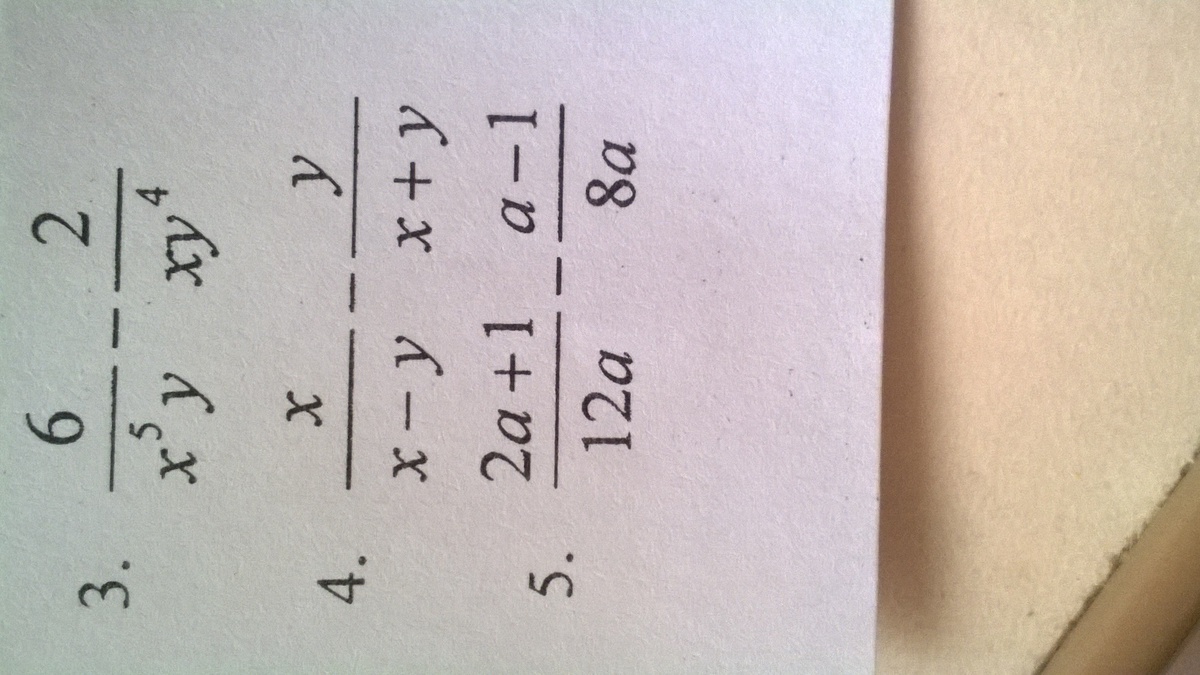 3. \frac{6}{x^5 y} - \frac{2}{xy^4}
4. \frac{x}{x-y} - \frac{y}{x+y}
5. \frac{2a+1}{12a} - \frac{a-1}{8a}